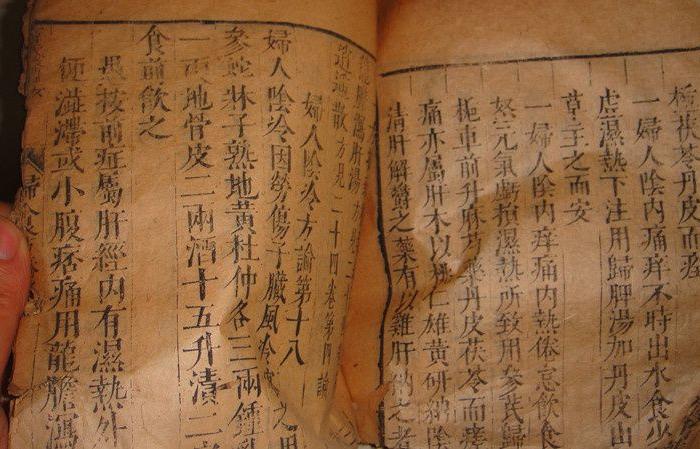 茯苓丹皮而痊
一婦人陰內痛痒不時出水食少
虛濕熱下注用歸脾湯加丹皮山
草主之而安
一婦人陰內痒痛內熱倦怠飲食
怒元氣虧損濕熱所致用參芪歸
梔車前升麻芍藥丹皮茯苓而痊
痛亦屬肝木以桃仁雄黃研納陰
清肝解鬱之藥有以雞肝納之者
龍膽瀉肝湯方
逍遙散方見二十四卷第四論
婦人陰冷方論第十八
婦人陰冷因勞傷子臟風冷之用
參蛇牀子熟地黃杜仲各三兩鍾乳
一兩地骨皮二兩酒十五升漬二
食前飲之
愚按前症屬肝經內有濕熱外
便溢滯或小腹痞痛用龍膽瀉
婦人